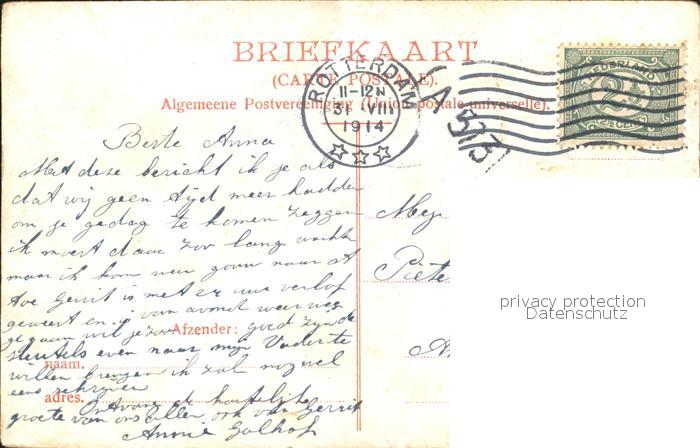 BRIEFKAART
(CARTE POSTALE).
Algemeene Postvereeniging (Union postale universelle).
ROTTERDAM
11-12N
31 VIII
1914
NEDERLAND
2½
Beste Anna
Met deze bericht ik je als
dat wij geen tijd meer hadden
om je gedag te komen zeggen
ik moest daar zoo lang wachte
maar ik kom weer gouw naar
toe Gerrit is met er uur verlof
geweest en van avond weer weg
gegaan wil je zoo goed zijn de
Afzender:
sleutels even naar mijn Vader te
naam.
willen brengen ik zal nog wel
eens schrijven
adres.
Ontvang de hartelijke
groete van ons allen ook van Gerrit
Annie
Mej
Piete
privacy protection
Datenschutz